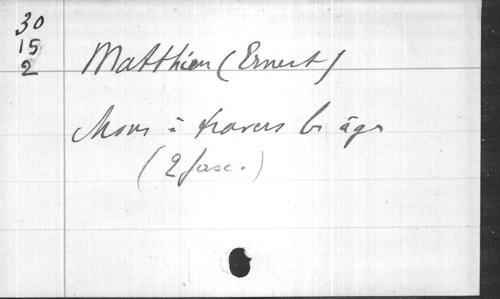 30
15
2
Matthieu (Ernest)
Mons à travers les âges
(2 fasc.)